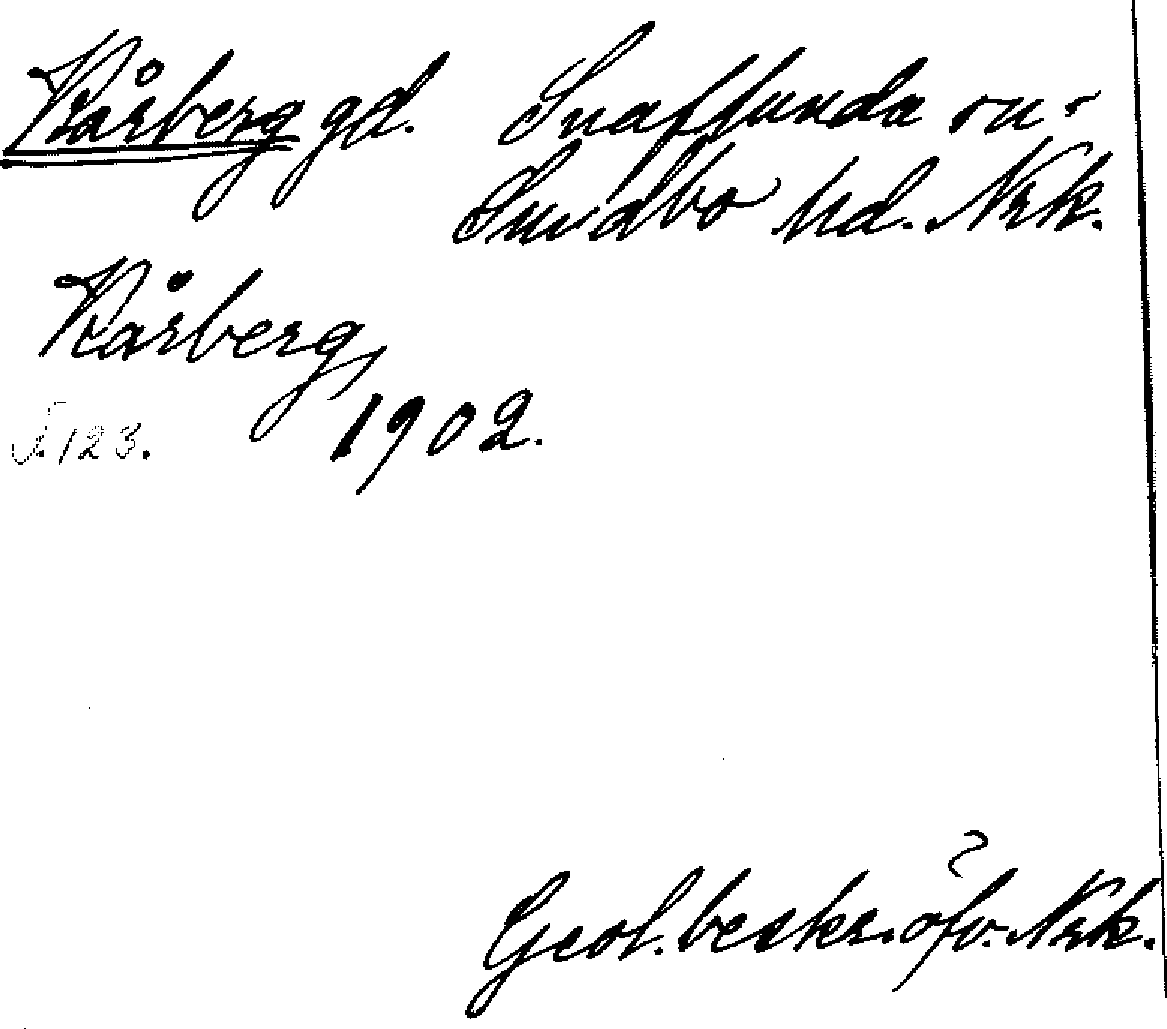 Kårberg gd. Snaflunda sn.
Sundbo hd. Nrk.
Kårberg,
S. 123. 1902.
Geol. beskr. öfv. Nrk.